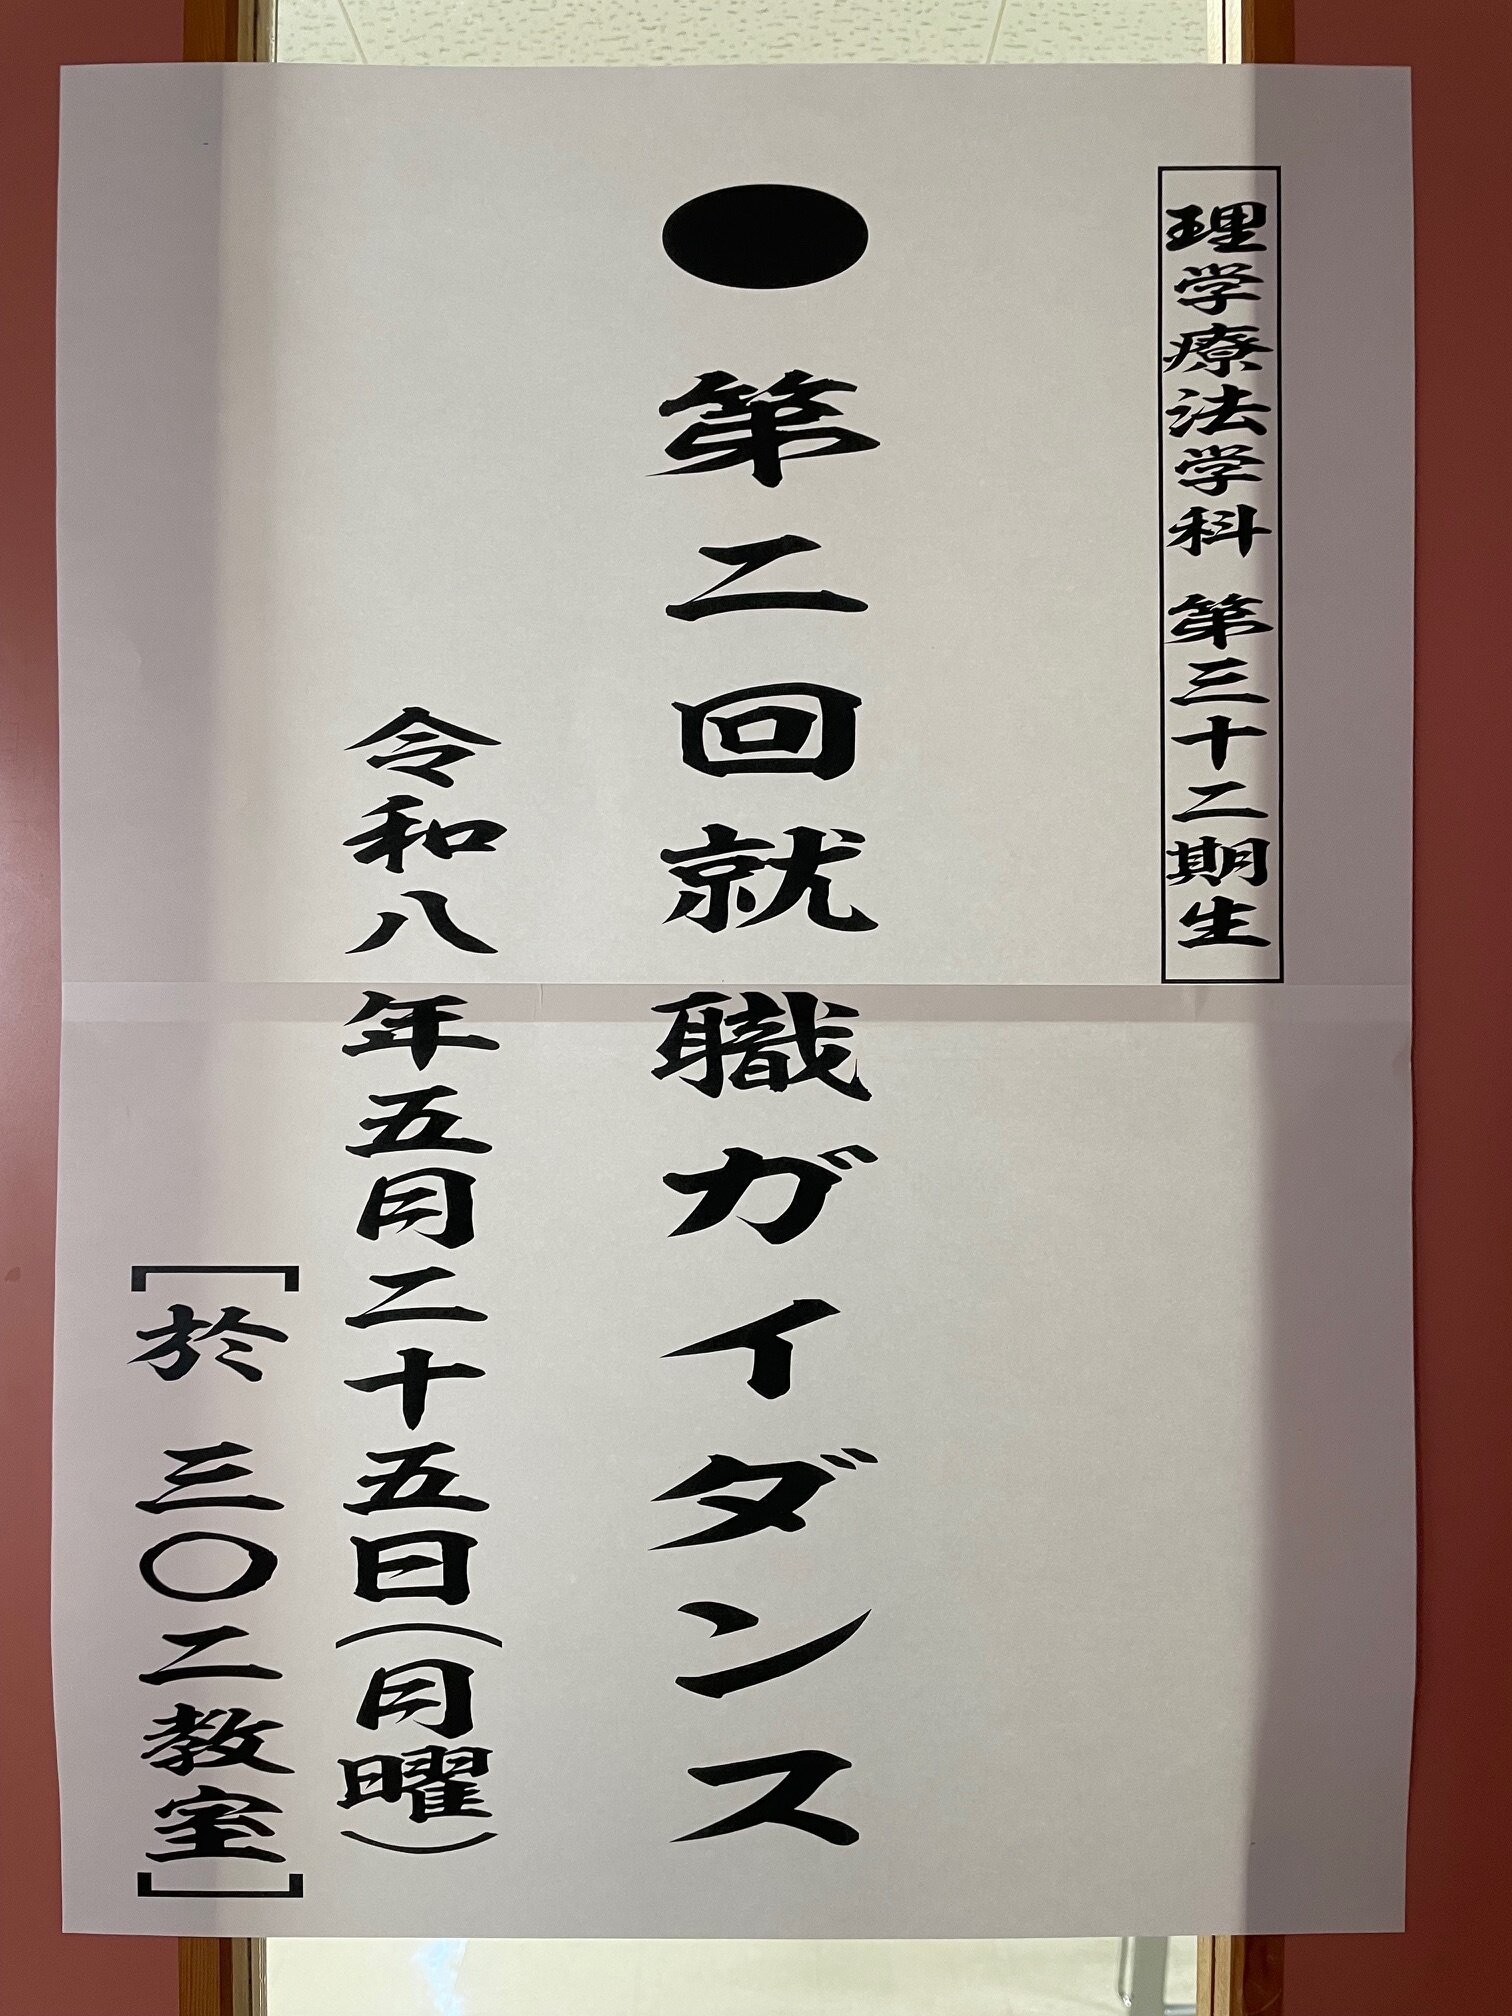 理学療法学科 第三十二期生
●第二回就職ガイダンス
令和八年五月二十五日(月曜)
[於 三〇二教室]